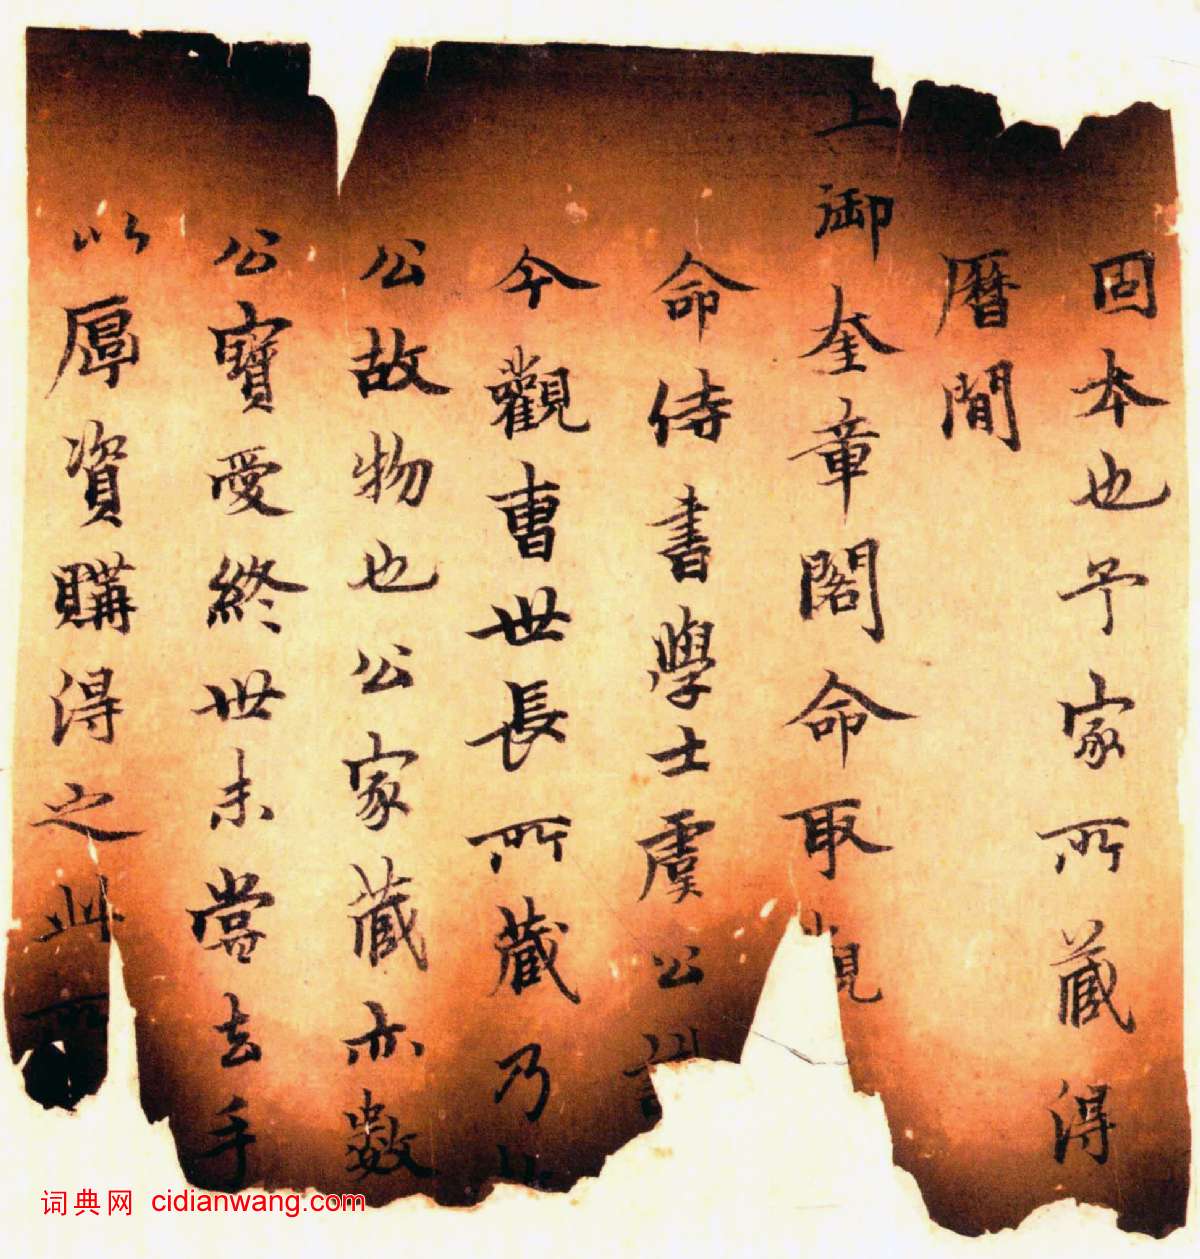 固本也予家所藏得
曆間
上御奎章閣命取觀
命侍書學士虞公
今觀曹世長所藏乃
公故物也公家藏亦數
公寶愛終世未嘗去手
以厚資購得之此所
词典网 cidianwang.com